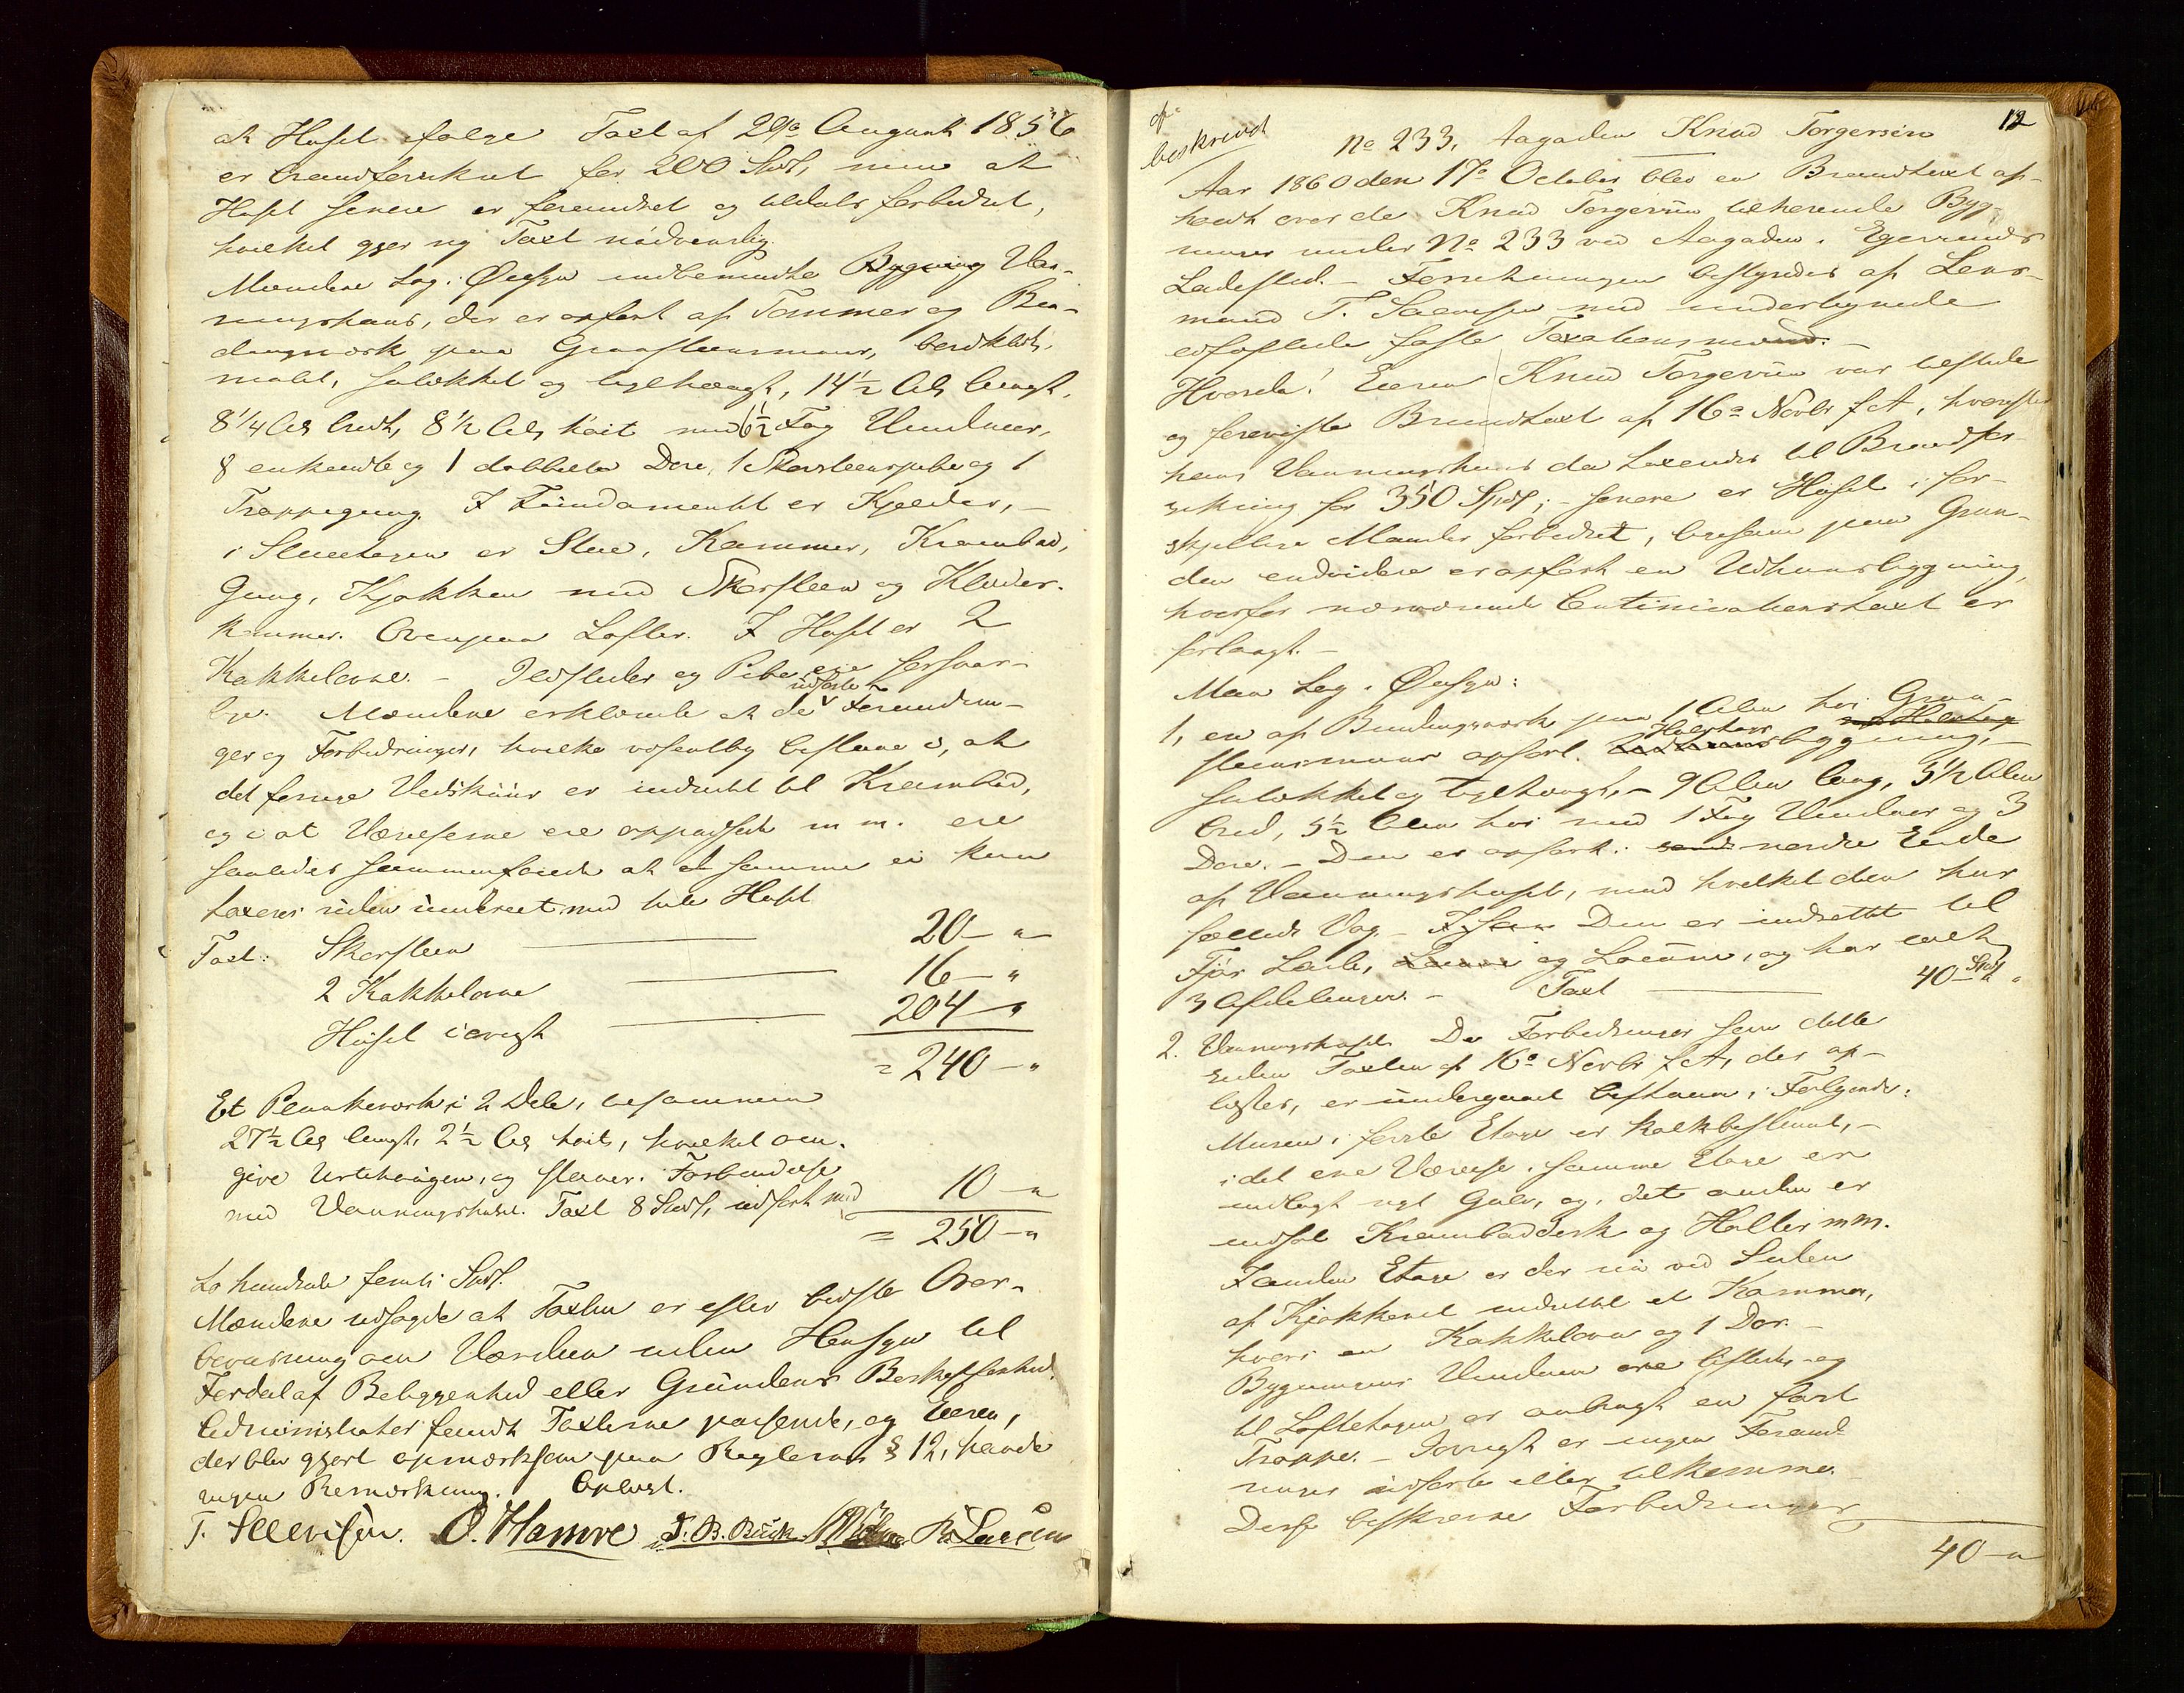 at Huset ifølge Taxt af 29de August 1856
er brandforsikret for 200 Spd, men at
Huset senere er forandret og tildels forbedret,
hvilket gjør ny Taxt nødvendig.
Mændene tog i Øiesyn indbemeldte Bygning Vaa-
ningshuus, der er opført af Tømmer og Bin-
dingsværk paa Graasteensmuur, bordklædt,
malet, sulækket og teglhængt, 14½ Al. langt,
8¼ Al. bredt, 8½ Al. høit med 6½ Fag Vinduer,
8 enkeldte og 1 dobbelte Døre, 1 Skorsteenspibe og 1
Trappegang. I Fundamentet er Kjelder, -
i Stueetagen er Stue, Kammer, Krambod,
Gang, Kjøkken med Skorsteen og Klæder-
kammer. Ovenpaa Lofter. I Huset er 2
Kakkelovne. - Ildsteder og Pibe ere forsvar-
lige. Mændene erklærede at de udførte Forandrin-
ger og Forbedringer, hvilke væsentlig bestaae i, at
det forrige Vedskuur er indredet til Krambod,
og i at Værelserne ere oppudsede m m. ere
saaledes sammenføiede at et samme ei kan
taxeres uden iberegnet med hele Huset
Taxt: Skorsteen 20 - "
2 Kakkelovne 16 - "
Huset iøvrigt 204 - "
= 240 - "
Et Plankeværk i 2 Dele, tilsammen
27½ Al. langt, 2½ Al. høit, hvilket om-
give Urtehaugen, og staaer i Forbindelse
med Vaaningshuset. Taxt 8 Spd, udført med 10 - "
= 250 - "
To hundrede femti Spd.
Mændene udsagde at Taxten er efter bedste Over-
beviisning om Værdien uden Hensyn til
Fordeel af Beliggenhed eller Grundens Beskaffenhed.
Administrator fandt Taxterne passende, og Eieren,
der blev gjort opmærksom paa Reglem. § 12, havde
ingen Bemærkning. Oplæst.
T. Sleevesen. O. Hamre R. Larsen
12
beskrevet
No 233, Aagaden Knud Torgersen
Aar 1860 den 17de October blev en Brandtaxt af-
holdt over de Knud Torgersen tilhørende Byg-
ninger under No 233 ved Aagaden i Egersunds
Ladested. - Forretningen bestyredes af Lens-
mand T. Sleevesen med undertegnede
edfæstede faste Taxationsmænd. -
Hvorda! Eieren Knud Torgersen var tilstede
og foreviste Brandtaxt af 16de Novbr f. A, hvorefter
hans Vaaningshuus da taxeredes til Brandfor-
sikring for 350 Spd; - senere er Huset i for-
skjellige Maader forbedret, ligesom paa Grun-
den endvidere er opført en Udhuusbygning,
hvorfor nærværende Continuationstaxt er
forlangt. -
Man tog i Øiesyn:
1, en af Bindingsværk paa 1 Alen høi Graa-
steensmuur opført bygning, -
sulækket og teglhængt, - 9 Alen lang, 5½ Alen
bred, 5½ Alen høi med 1 Fag Vinduer og 3
Døre. - Den er opført i nordre Ende
af Vaaningshuset, med hvilket den har
fælleds Væg. - Den er indrettet til
Fjøs, Lade, og Locum, og har ialt
3 Afdelinger. - Taxt 40 Spd "
2. Vaaningshuset. De Forbedringer som dette
siden Taxten af 16de Novbr f. A, der op-
læstes, er undergaaet bestaaer i Følgende:
Muren i første Etage er kalkbeslaaet, -
i det ene Værelse i samme Etage er
indlagt nyt Gulv, og i det andet er
indsat Krambaddisk og Hylder m m.
I anden Etage er der nu ved Siden
af Kjøkkenet indrettet et Kammer,
hvori en Kakkelovn og 1 Dør. -
Bygningens Vinduer ere listede og
til Loftetagen er anbragt en fast
Trappe. - Iøvrigt er ingen Forand-
ringer udførte eller tilkomme.
Disse beskrevne Forbedringer
40 - "